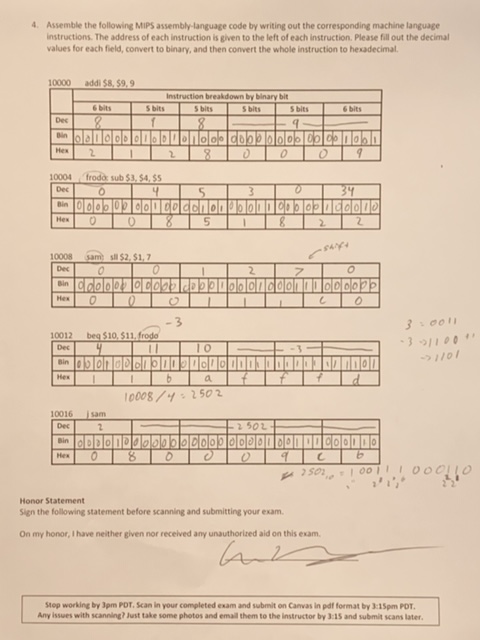 4. Assemble the following MIPS assembly-language code by writing out the corresponding machine language
instructions. The address of each instruction is given to the left of each instruction. Please fill out the decimal
values for each field, convert to binary, and then convert the whole instruction to hexadecimal.
10000 addi $8, $9, 9
Instruction breakdown by binary bit
6 bits 5 bits 5 bits 5 bits 5 bits 6 bits
Dec 8 9 8 9
Bin 0 0 1 0 0 0 0 1 0 0 1 0 1 0 0 0 0 0 0 0 0 0 0 0 0 0 0 0 1 0 0 1
Hex 2 1 2 8 0 0 0 9
10004 frodo: sub $3, $4, $5
Dec 0 4 5 3 0 34
Bin 0 0 0 0 0 0 0 0 1 0 0 0 0 1 0 1 0 0 0 1 1 0 0 0 0 0 1 0 0 0 1 0
Hex 0 0 8 5 1 8 2 2
10008 sam: sll $2, $1, 7
shift
Dec 0 0 1 2 7 0
Bin 0 0 0 0 0 0 0 0 0 0 0 0 0 0 0 1 0 0 0 1 0 0 0 1 1 1 0 0 0 0 0 0
Hex 0 0 0 1 1 1 c 0
-3
10012 beq $10, $11, frodo
Dec 4 11 10 -3
Bin 0 0 0 1 0 0 0 1 0 1 1 0 1 0 1 0 1 1 1 1 1 1 1 1 1 1 1 1 1 1 0 1
Hex 1 1 6 a f f f d
3 = 0011
-3 → 1100 +1
→ 1101
10008/4 = 2502
10016 j sam
Dec 2 2502
Bin 0 0 0 0 1 0 0 0 0 0 0 0 0 0 0 0 0 0 0 0 1 0 0 1 1 1 0 0 0 1 1 0
Hex 0 8 0 0 0 9 c 6
2502₁₀ = 100111000110
Honor Statement
Sign the following statement before scanning and submitting your exam.
On my honor, I have neither given nor received any unauthorized aid on this exam.
Stop working by 3pm PDT. Scan in your completed exam and submit on Canvas in pdf format by 3:15pm PDT.
Any issues with scanning? Just take some photos and email them to the instructor by 3:15 and submit scans later.